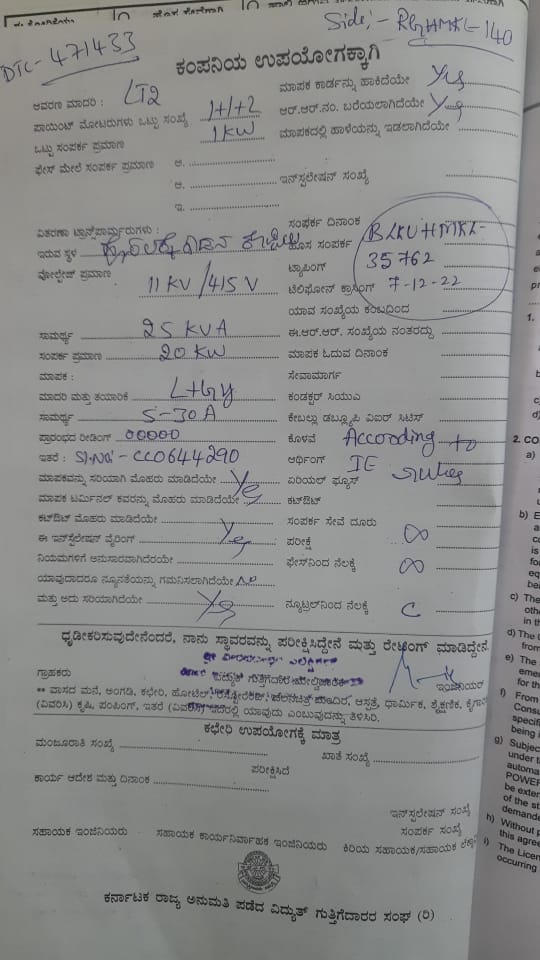 Side:- RLyHMKL-140
DTC- 471433
ಕಂಪನಿಯ ಉಪಯೋಗಕ್ಕಾಗಿ
ಆವರಣ ಮಾದರಿ : LT2 ಮಾಪಕ ಕಾರ್ಡನ್ನು ಹಾಕಿದೆಯೇ Yes
ಪಾಯಿಂಟ್ ಮೋಟರುಗಳು ಒಟ್ಟು ಸಂಖ್ಯೆ 1+1+2 ಆರ್.ಆರ್.ನಂ. ಬರೆಯಲಾಗಿದೆಯೇ Yes
ಒಟ್ಟು ಸಂಪರ್ಕ ಪ್ರಮಾಣ 1 KW ಮಾಪಕದಲ್ಲಿ ಹಾಳೆಯನ್ನು ಇಡಲಾಗಿದೆಯೇ
ಫೇಸ್ ಮೇಲೆ ಸಂಪರ್ಕ ಪ್ರಮಾಣ ಅ.
ಆ. ಇನ್‌ಸ್ಟಲೇಷನ್ ಸಂಖ್ಯೆ
ಇ.
ವಿತರಣಾ ಟ್ರಾನ್ಸ್‌ಫಾರ್ಮರುಗಳು : ಸಂಪರ್ಕ ದಿನಾಂಕ BLKUHMKL-
ಇರುವ ಸ್ಥಳ ಹೊಸ ಸಂಪರ್ಕ 35762
ವೋಲ್ಟೇಜ್ ಪ್ರಮಾಣ 11 KV /415 V ಟ್ಯಾಪಿಂಗ್
ಟೆಲಿಫೋನ್ ಕ್ರಾಸಿಂಗ್ 7-12-22
ಯಾವ ಸಂಖ್ಯೆಯ ಕಂಬದಿಂದ
ಸಾಮರ್ಥ್ಯ 25 KVA ಈ.ಆರ್.ಆರ್. ಸಂಖ್ಯೆಯ ನಂತರದ್ದು
ಸಂಪರ್ಕ ಪ್ರಮಾಣ 20 KW ಮಾಪಕ ಓದುವ ದಿನಾಂಕ
ಮಾಪಕ : ಸೇವಾಮಾರ್ಗ
ಮಾದರಿ ಮತ್ತು ತಯಾರಿಕೆ L+Gy ಕಂಡಕ್ಟರ್ ಸಿಯುಎ
ಸಾಮರ್ಥ್ಯ 5-30A ಕೇಬಲ್ಲು ಡಬ್ಲ್ಯೂಪಿ ವಿಐರ್ ಸಿಟಿಸ್
ಪ್ರಾರಂಭದ ರೀಡಿಂಗ್ 00000 ಕೊಳವೆ According to
ಇತರೆ : Sl.No:- CC0644290 ಆರ್ಥಿಂಗ್ IE rules
ಮಾಪಕವನ್ನು ಸರಿಯಾಗಿ ಮೊಹರು ಮಾಡಿದೆಯೇ Yes ಏರಿಯಲ್ ಫ್ಯೂಸ್
ಮಾಪಕ ಟರ್ಮಿನಲ್ ಕವರನ್ನು ಮೊಹರು ಮಾಡಿದೆಯೇ ಕಟ್‌ಔಟ್
ಕಟ್‌ಔಟ್ ಮೊಹರು ಮಾಡಿದೆಯೇ ಸಂಪರ್ಕ ಸೇವೆ ದೂರು
ಈ ಇನ್‌ಸ್ಟಲೇಷನ್ ವೈರಿಂಗ್ Yes ಪರೀಕ್ಷೆ ∞
ನಿಯಮಗಳಿಗೆ ಅನುಸಾರವಾಗಿದೆಯೇ ಫೇಸ್‌ನಿಂದ ನೆಲಕ್ಕೆ ∞
ಯಾವುದಾದರೂ ನ್ಯೂನತೆಯನ್ನು ಗಮನಿಸಲಾಗಿದೆಯೇ No
ಮತ್ತು ಅದು ಸರಿಯಾಗಿದೆಯೇ Yes ನ್ಯೂಟ್ರಲ್‌ನಿಂದ ನೆಲಕ್ಕೆ C
ಧೃಡೀಕರಿಸುವುದೇನೆಂದರೆ, ನಾನು ಸ್ಥಾವರವನ್ನು ಪರೀಕ್ಷಿಸಿದ್ದೇನೆ ಮತ್ತು ರೇಟಿಂಗ್ ಮಾಡಿದ್ದೇನೆ.
ಗ್ರಾಹಕರು ಇಂಜಿನಿಯರ್
** ವಾಸದ ಮನೆ, ಅಂಗಡಿ, ಕಛೇರಿ, ಹೋಟೆಲ್, ಆಸ್ಪತ್ರೆ, ಧಾರ್ಮಿಕ, ಶೈಕ್ಷಣಿಕ, ಕೈಗಾರಿ
(ವಿವರಿಸಿ) ಕೃಷಿ, ಪಂಪಿಂಗ್, ಇತರೆ ಇದರಲ್ಲಿ ಯಾವುದು ಎಂಬುವುದನ್ನು ತಿಳಿಸಿರಿ.
ಕಛೇರಿ ಉಪಯೋಗಕ್ಕೆ ಮಾತ್ರ
ಮಂಜೂರಾತಿ ಸಂಖ್ಯೆ ಖಾತೆ ಸಂಖ್ಯೆ
ಪರೀಕ್ಷಿಸಿದೆ
ಕಾರ್ಯ ಆದೇಶ ಮತ್ತು ದಿನಾಂಕ
ಇನ್‌ಸ್ಟಲೇಷನ್ ಸಂಖ್ಯೆ
ಸಂಪರ್ಕ ಸಂಖ್ಯೆ
ಸಹಾಯಕ ಇಂಜಿನಿಯರು ಸಹಾಯಕ ಕಾರ್ಯನಿರ್ವಾಹಕ ಇಂಜಿನಿಯರು ಕಿರಿಯ ಸಹಾಯಕ/ಸಹಾಯಕ
ಕರ್ನಾಟಕ ರಾಜ್ಯ ಅನುಮತಿ ಪಡೆದ ವಿದ್ಯುತ್ ಗುತ್ತಿಗೆದಾರರ ಸಂಘ (ರಿ)
1.
2. CO
a)
b) E
c) The
othe
in th
d) The C
from
e) The
eme
for th
f) From
Consu
specifi
being i
g) Subjec
under t
automa
POWER
be exter
of the st
demande
h) Without p
this agree
i) The Licen
occurring